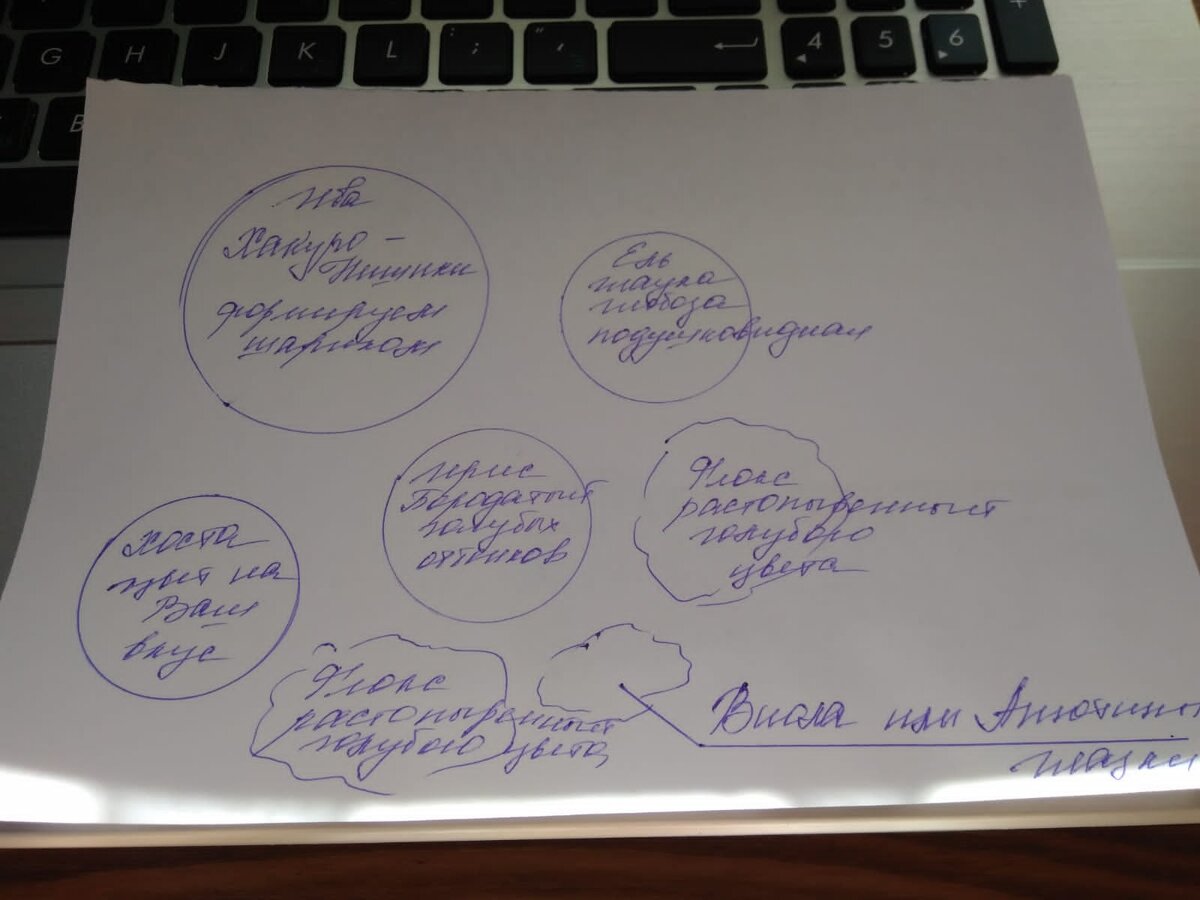 G H J K L : ; " ' 4 5 6
B
+
ива
Хакуро-
Нишики
формируем
шариком
Ель
глаука
глобоза
подушковидная
ирис
бородатый
голубых
оттенков
Флокс
растопыренный
голубого
цвета
хоста
цвет на
Ваш
вкус
Флокс
растопыренный
голубого цвета
Виола или Анютины
глазки